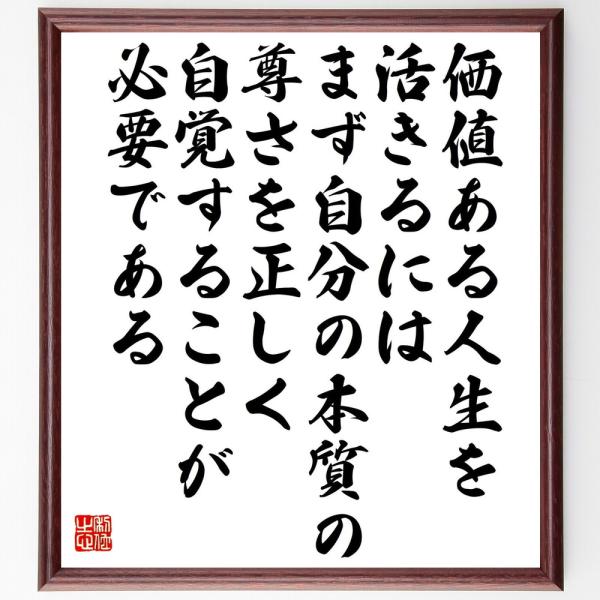 価値ある人生を
活きるには
まず自分の本質の
尊さを正しく
自覚することが
必要である